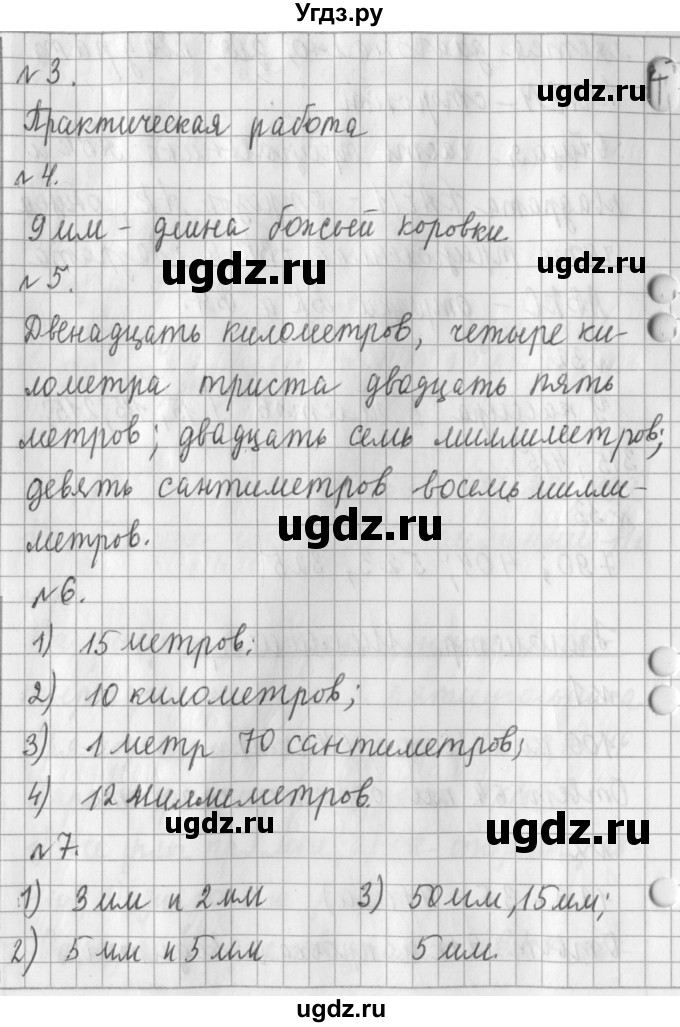 Угдз.ру
№3.
ugdz.ru
Практическая работа
№4.
9 мм - длина божьей коровки
ugdz.ru
ugdz.ru
№5.
Двенадцать километров, четыре ки-
лометра триста двадцать пять
метров; двадцать семь миллиметров;
девять сантиметров восемь милли-
метров.
ugdz.ru
№6.
1) 15 метров;
2) 10 километров;
3) 1 метр 70 сантиметров;
4) 12 миллиметров.
ugdz.ru
ugdz.ru
№7.
1) 3 мм и 2 мм 3) 50 мм, 15 мм;
2) 5 мм и 5 мм 5 мм.
ugdz.ru